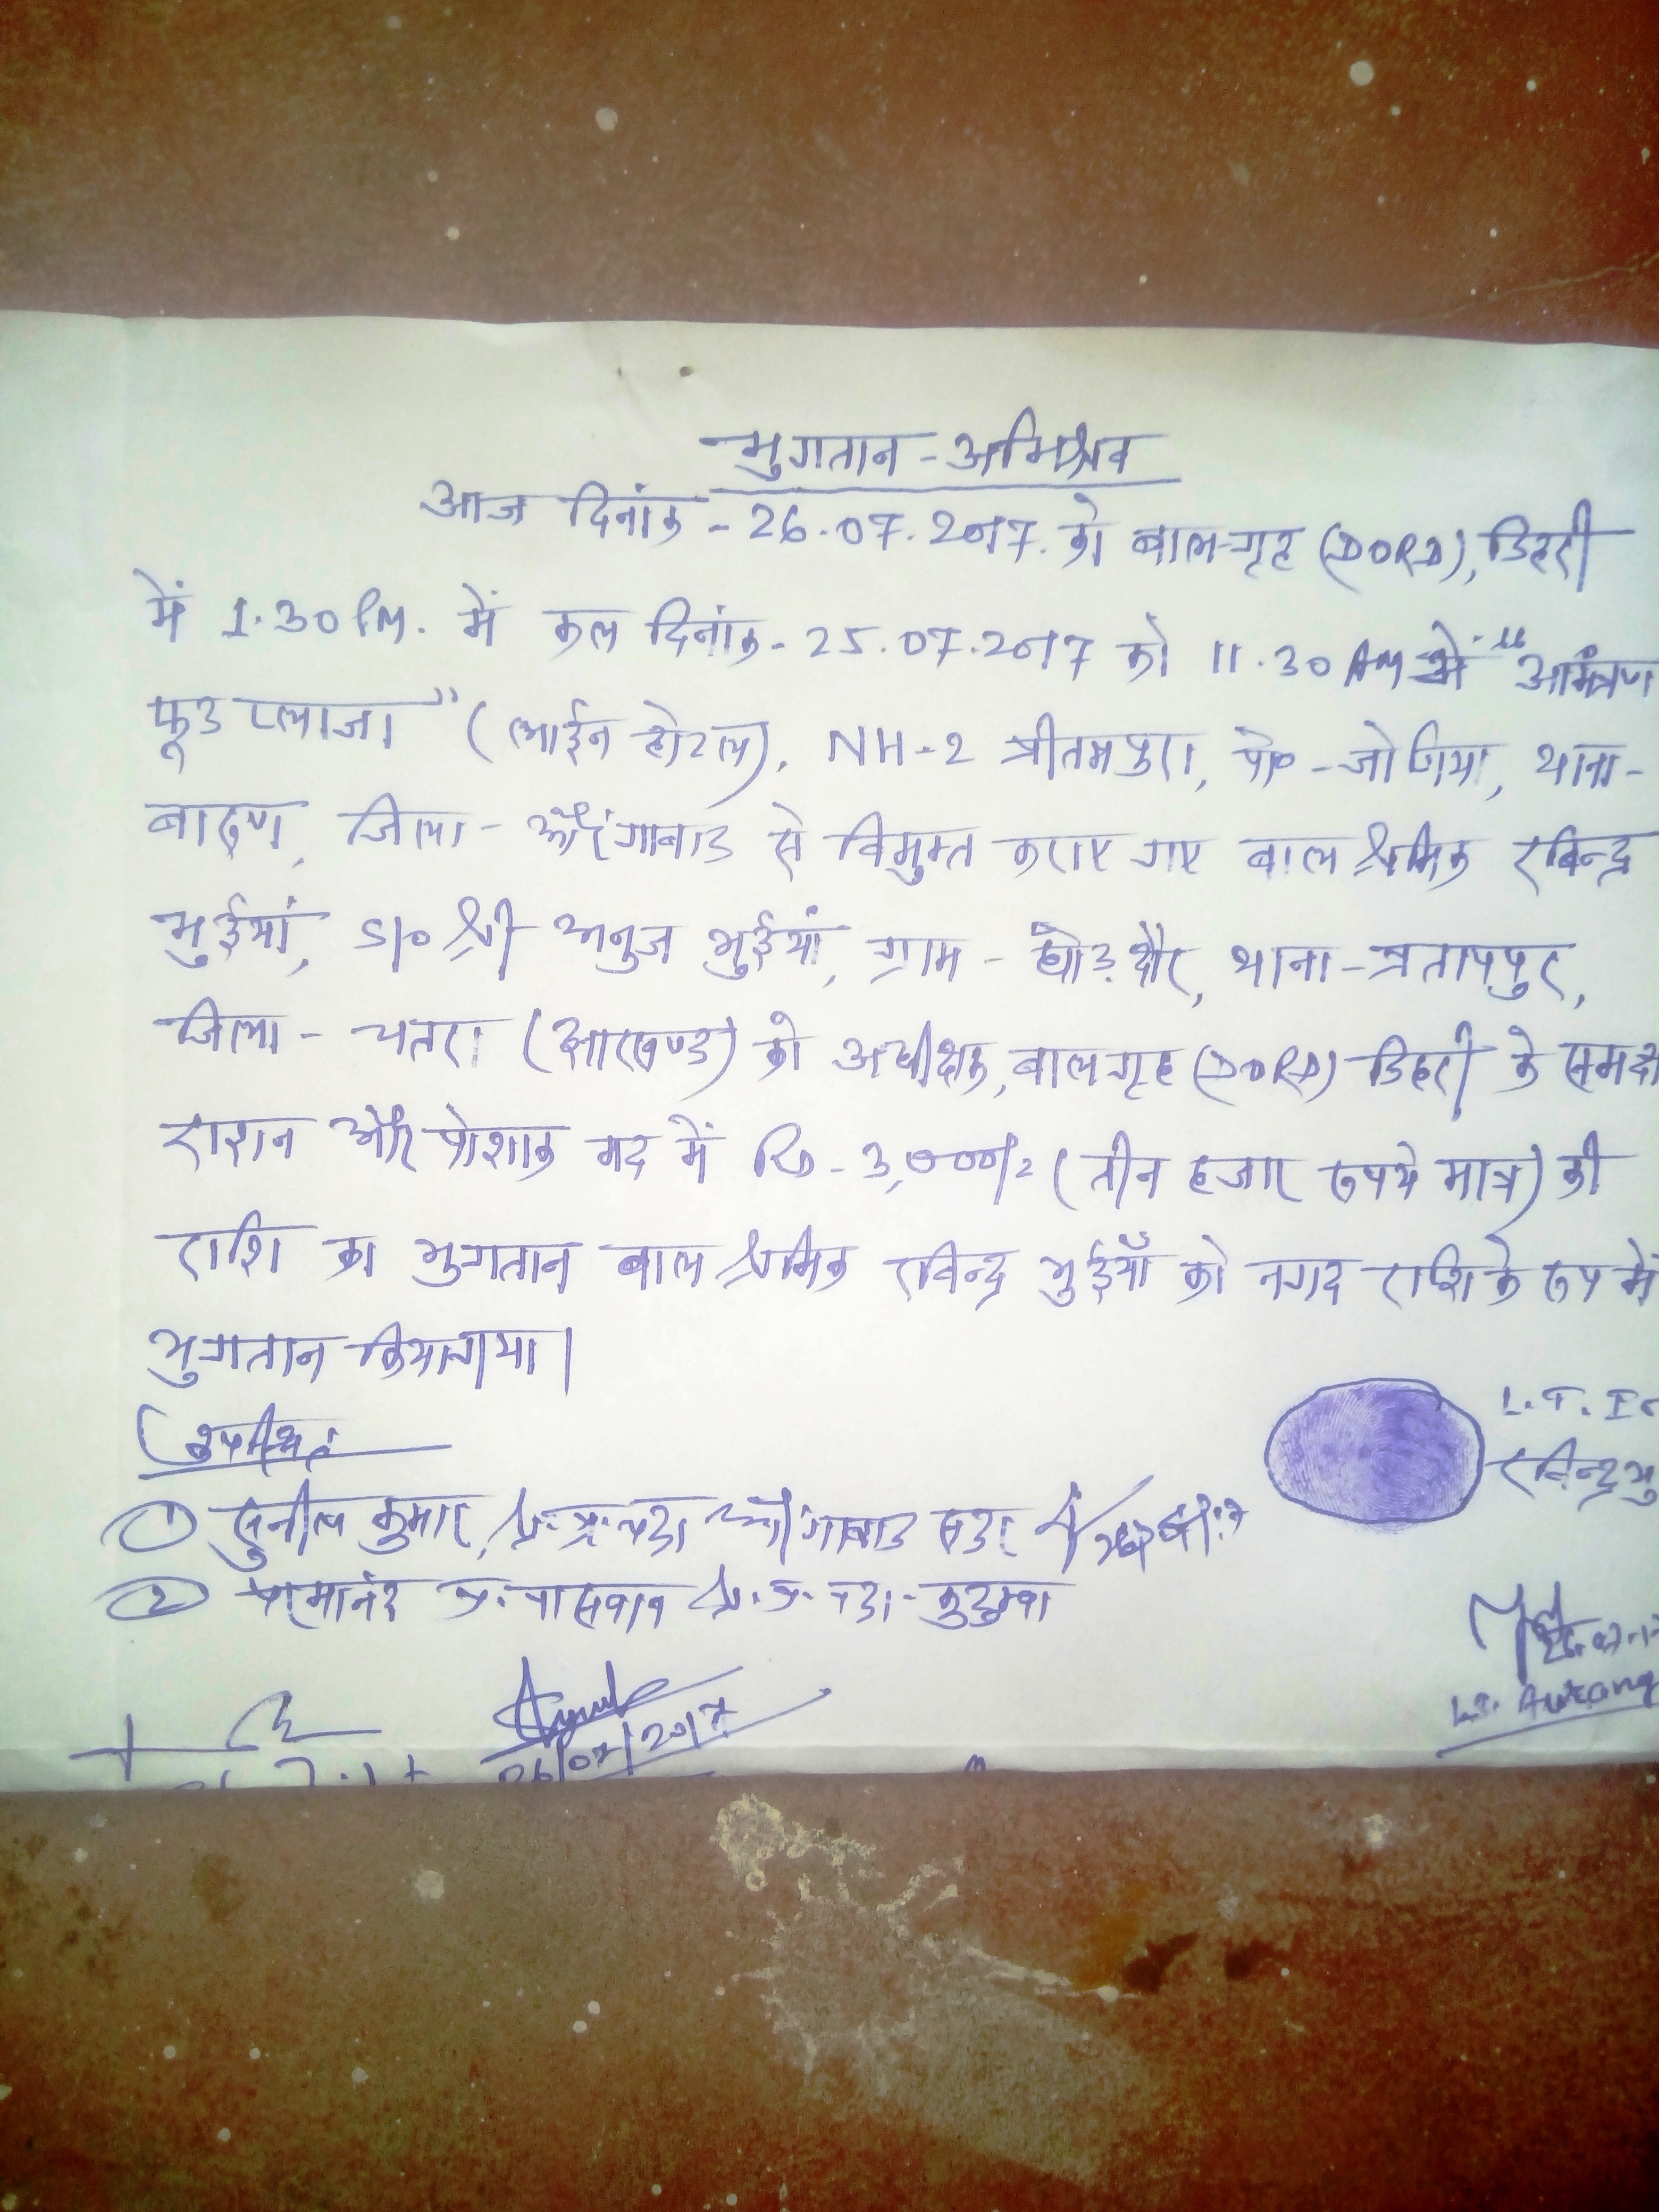 भुगतान - अभिश्रव
आज दिनांक - 26.07.2017. को बाल-गृह (DORD), डिहरी
में 1.30 PM. में कल दिनांक - 25.07.2017 को 11.30 AM में "आमंत्रण
फूड प्लाजा" (लाईन होटल), NH-2 प्रीतमपुरा, पो० - जोगिया, थाना -
बारूण, जिला - औरंगाबाद से विमुक्त कराए गए बाल श्रमिक रविन्द्र
भुईयां, S/o श्री अनुज भुईयां, ग्राम - थाना - प्रतापपुर,
जिला - चतरा (झारखण्ड) को अधीक्षक, बालगृह (DORD) डिहरी के समक्ष
राशन और पोशाक मद में Rs - 3,000/= (तीन हजार रूपये मात्र) की
राशि का भुगतान बाल श्रमिक रविन्द्र भुईयाँ को नगद राशि के रूप में
भुगतान किया गया।
उपस्थित
L.T.I of
रविन्द्र भु
① सुनील कुमार, श्र. प्र. पदा औरंगाबाद सदर
② परमानंद प्र. पासवान श्र. प्र. पदा - कुटुम्बा
26/07/2017